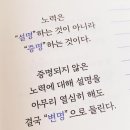 노력은
"설명"하는 것이 아니라
"증명"하는 것이다.
증명되지 않은
노력에 대해 설명을
아무리 열심히 해도
결국 "변명"으로 들린다.